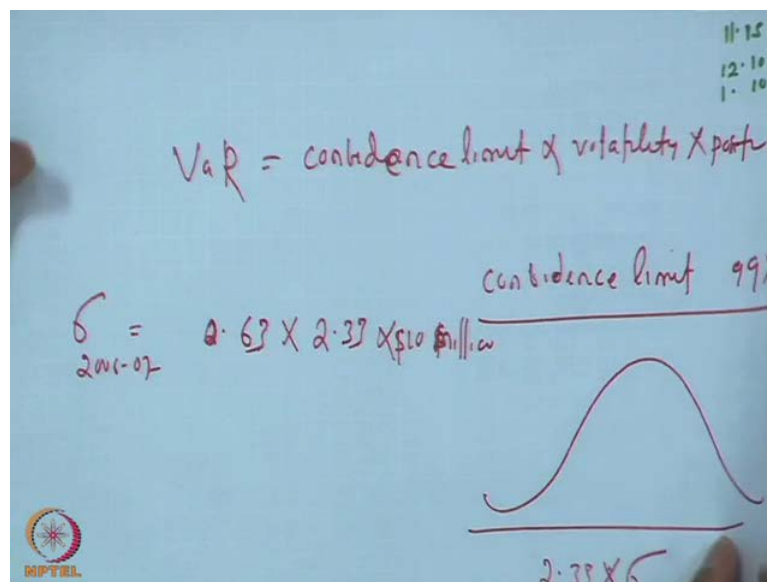 11.15
12.10
1. 10
VaR = confidence limit X volatility X portf
confidence limit 99%
σ = 2.63 X 2.33 X $10 million
2006-07
2.33 X σ
NPTEL